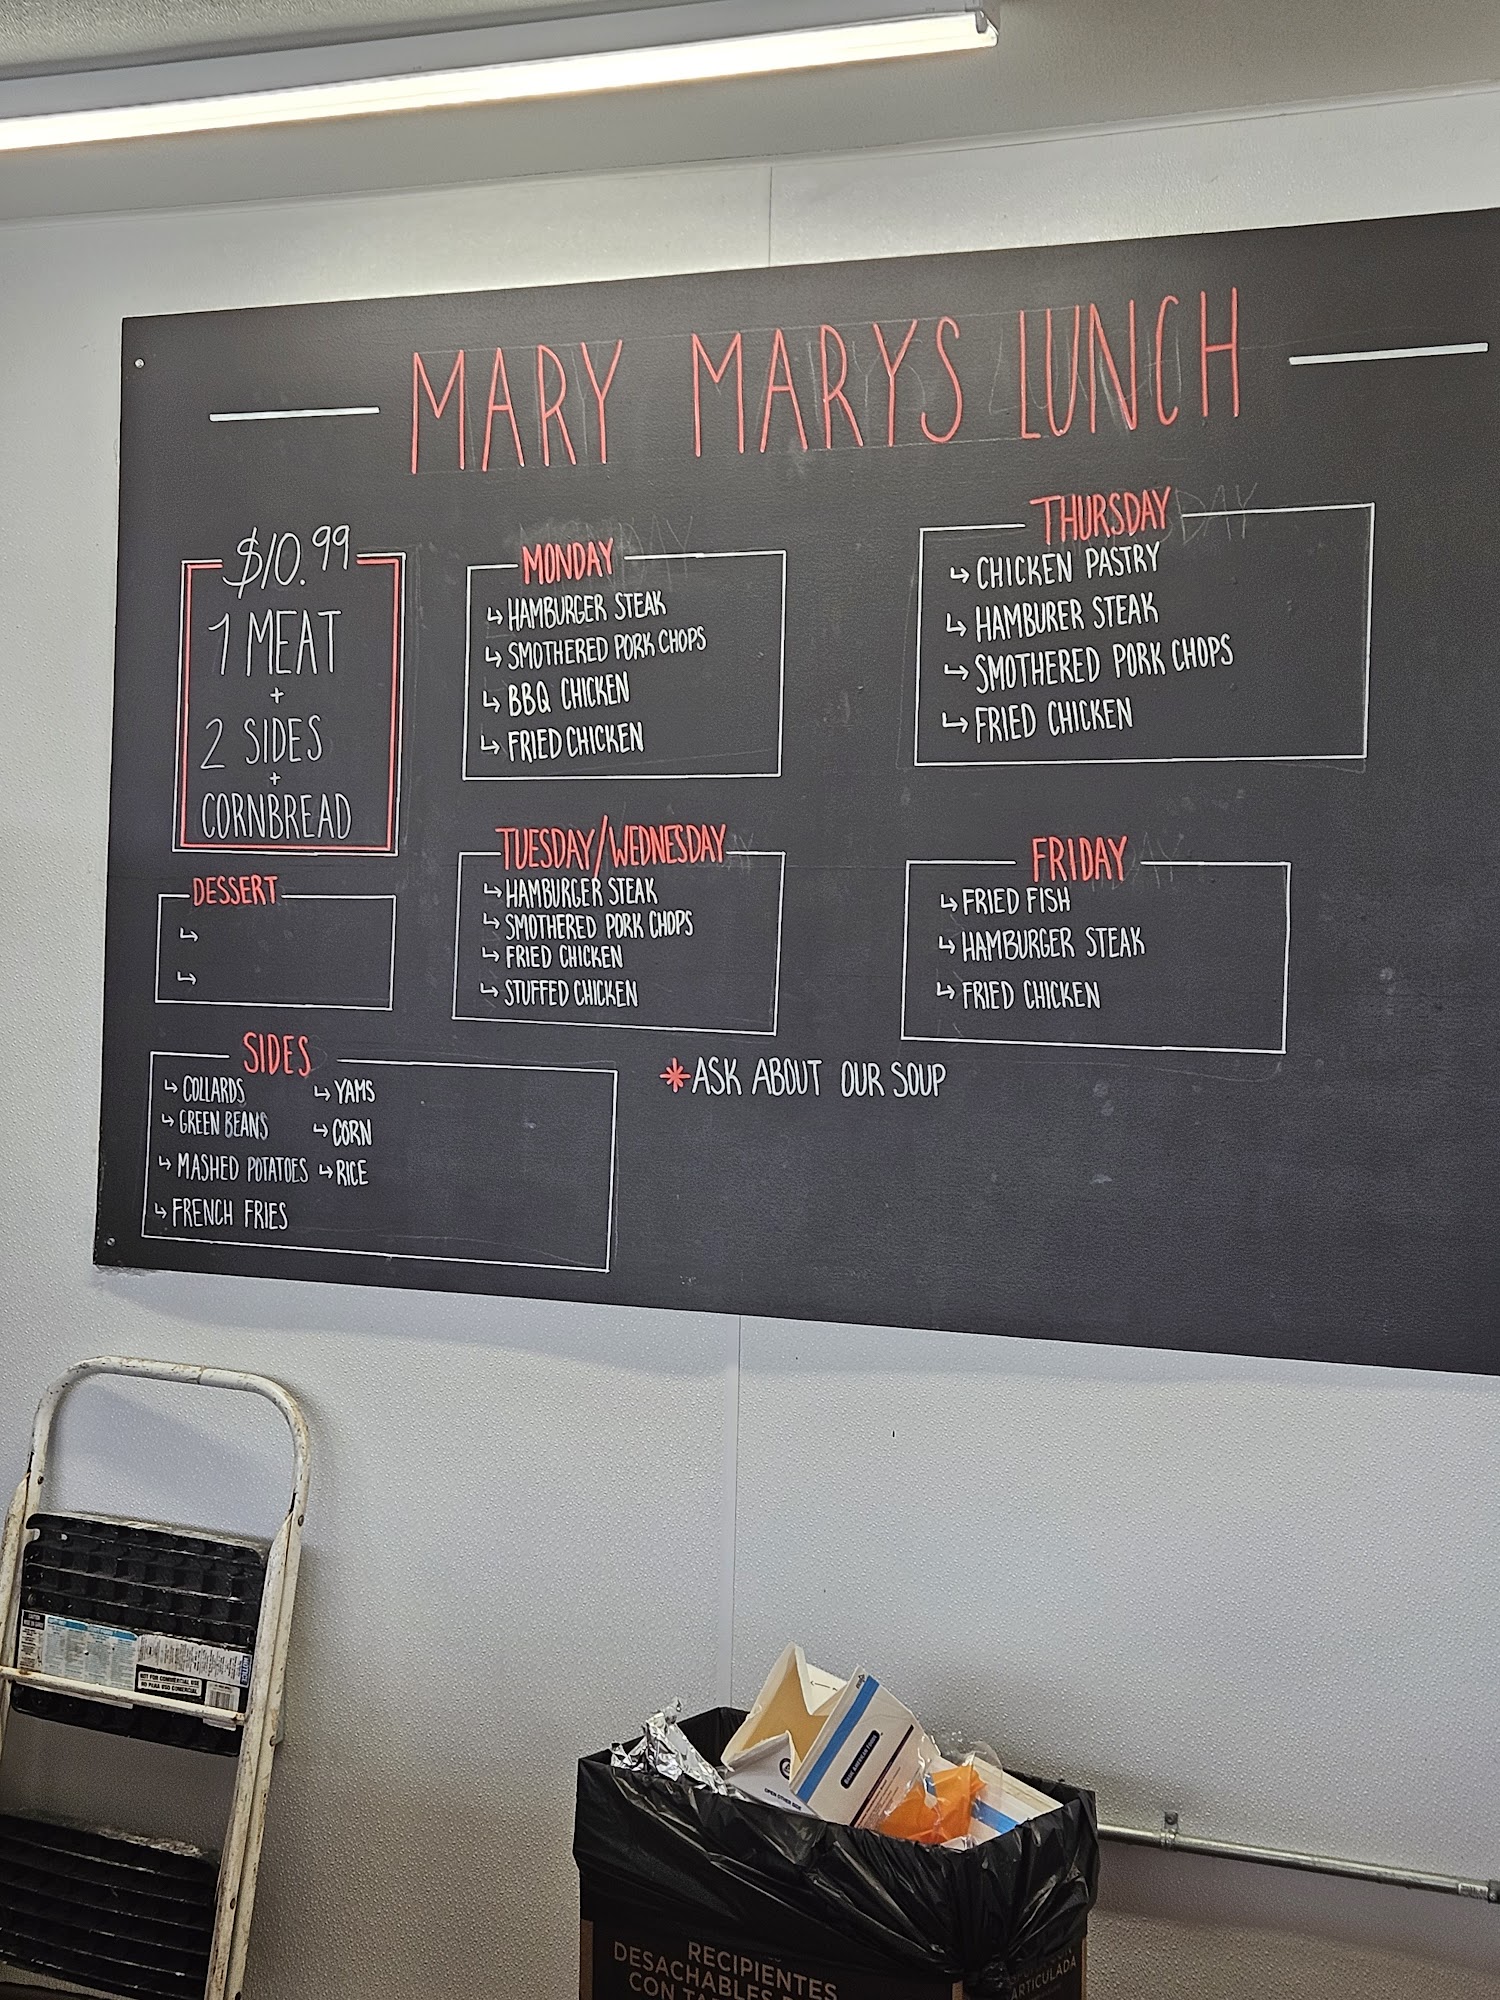 MARY MARYS LUNCH
$10.99
1 MEAT
+
2 SIDES
+
CORNBREAD
DESSERT
SIDES
COLLARDS
GREEN BEANS
MASHED POTATOES
FRENCH FRIES
YAMS
CORN
RICE
MONDAY
HAMBURGER STEAK
SMOTHERED PORK CHOPS
BBQ CHICKEN
FRIED CHICKEN
TUESDAY/WEDNESDAY
HAMBURGER STEAK
SMOTHERED PORK CHOPS
FRIED CHICKEN
STUFFED CHICKEN
THURSDAY
CHICKEN PASTRY
HAMBURER STEAK
SMOTHERED PORK CHOPS
FRIED CHICKEN
FRIDAY
FRIED FISH
HAMBURGER STEAK
FRIED CHICKEN
*ASK ABOUT OUR SOUP
NOT FOR COMMERCIAL USE
NO PARA USO COMERCIAL
OPEN OTHER SIDE
RECIPIENTES
DESACHABLES
CON
ARTICULADA